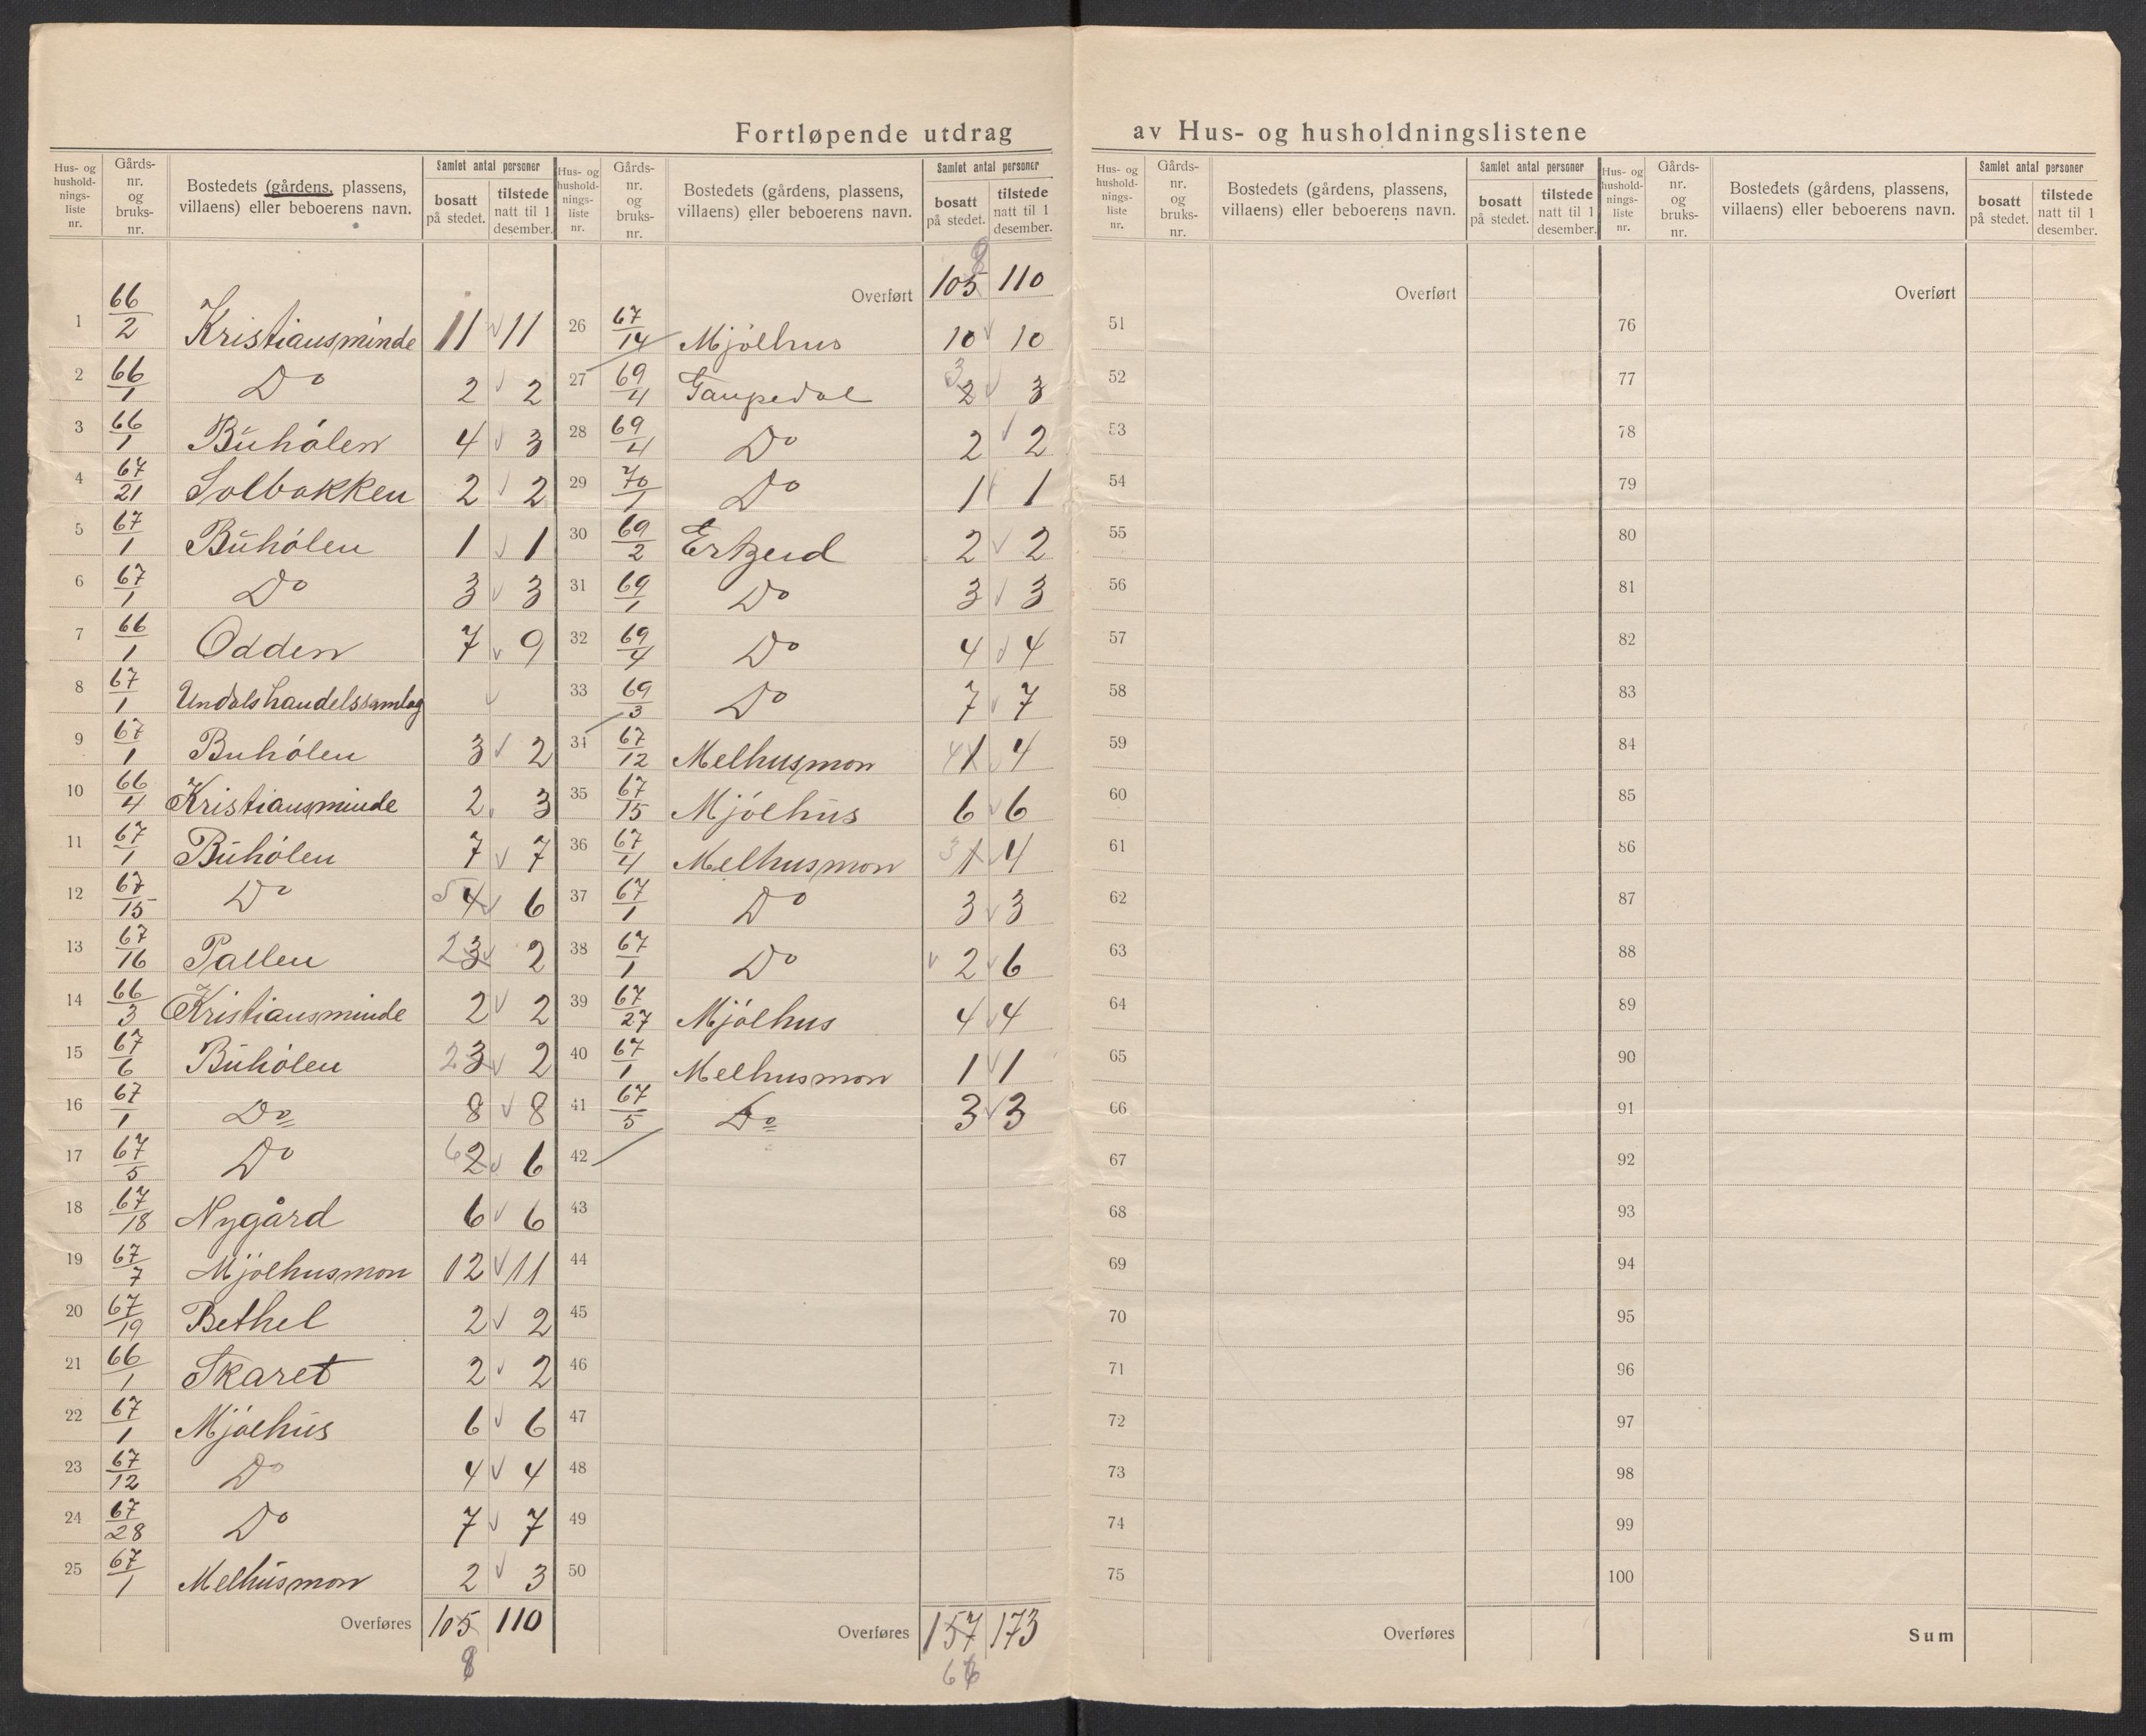 Fortløpende utdrag av Hus- og husholdningslistene
Hus- og hushold- nings- liste nr. | Gårds- nr. og bruks- nr. | Bostedets (gårdens, plassens, villaens) eller beboerens navn. | Samlet antal personer | bosatt på stedet. | tilstede natt til 1 desember.
1 66/2 Kristiansminde 11 11
2 66/1 Do 2 2
3 66/1 Buhölen 4 3
4 67/21 Solbakken 2 2
5 67/1 Buhölen 1 1
6 67/1 Do 3 3
7 66/1 Odden 7 9
8 67/1 Undalshandelssamlag
9 67/1 Buhölen 3 2
10 66/4 Kristiansminde 2 3
11 67/1 Buhölen 7 7
12 67/15 Do 5 4 6
13 67/16 Pallen 2 3 2
14 66/3 Kristiansminde 2 2
15 67/6 Buhölen 2 3 2
16 67/1 Do 8 8
17 67/5 Do 6 2 6
18 67/18 Nygård 6 6
19 67/7 Mjölhusmon 12 11
20 67/19 Bethel 2 2
21 66/1 Skaret 2 2
22 67/1 Mjölhus 6 6
23 67/12 Do 4 4
24 67/28 Do 7 7
25 67/1 Melhusmon 2 3
Overføres 105 110
8
Hus- og hushold- nings- liste nr. | Gårds- nr. og bruks- nr. | Bostedets (gårdens, plassens, villaens) eller beboerens navn. | Samlet antal personer | bosatt på stedet. | tilstede natt til 1 desember.
8
Overført 105 110
26 67/14 Mjölhus 10 10
27 69/4 Gaupedal 3 2 3
28 69/4 Do 2 2
29 70/1 Do 1 1
30 69/2 Ertzeid 2 2
31 69/1 Do 3 3
32 69/4 Do 4 4
33 69/3 Do 7 7
34 67/12 Melhusmon 4 1 4
35 67/15 Mjölhus 6 6
36 67/4 Melhusmon 3 1 4
37 67/1 Do 3 3
38 67/1 Do 2 6
39 67/27 Mjölhus 4 4
40 67/1 Melhusmon 1 1
41 67/5 Do 3 3
42
43
44
45
46
47
48
49
50
Overføres 157 173
66
Hus- og hushold- nings- liste nr. | Gårds- nr. og bruks- nr. | Bostedets (gårdens, plassens, villaens) eller beboerens navn. | Samlet antal personer | bosatt på stedet. | tilstede natt til 1 desember.
Overført
51
52
53
54
55
56
57
58
59
60
61
62
63
64
65
66
67
68
69
70
71
72
73
74
75
Overføres
Hus- og hushold- nings- liste nr. | Gårds- nr. og bruks- nr. | Bostedets (gårdens, plassens, villaens) eller beboerens navn. | Samlet antal personer | bosatt på stedet. | tilstede natt til 1 desember.
Overført
76
77
78
79
80
81
82
83
84
85
86
87
88
89
90
91
92
93
94
95
96
97
98
99
100
Sum